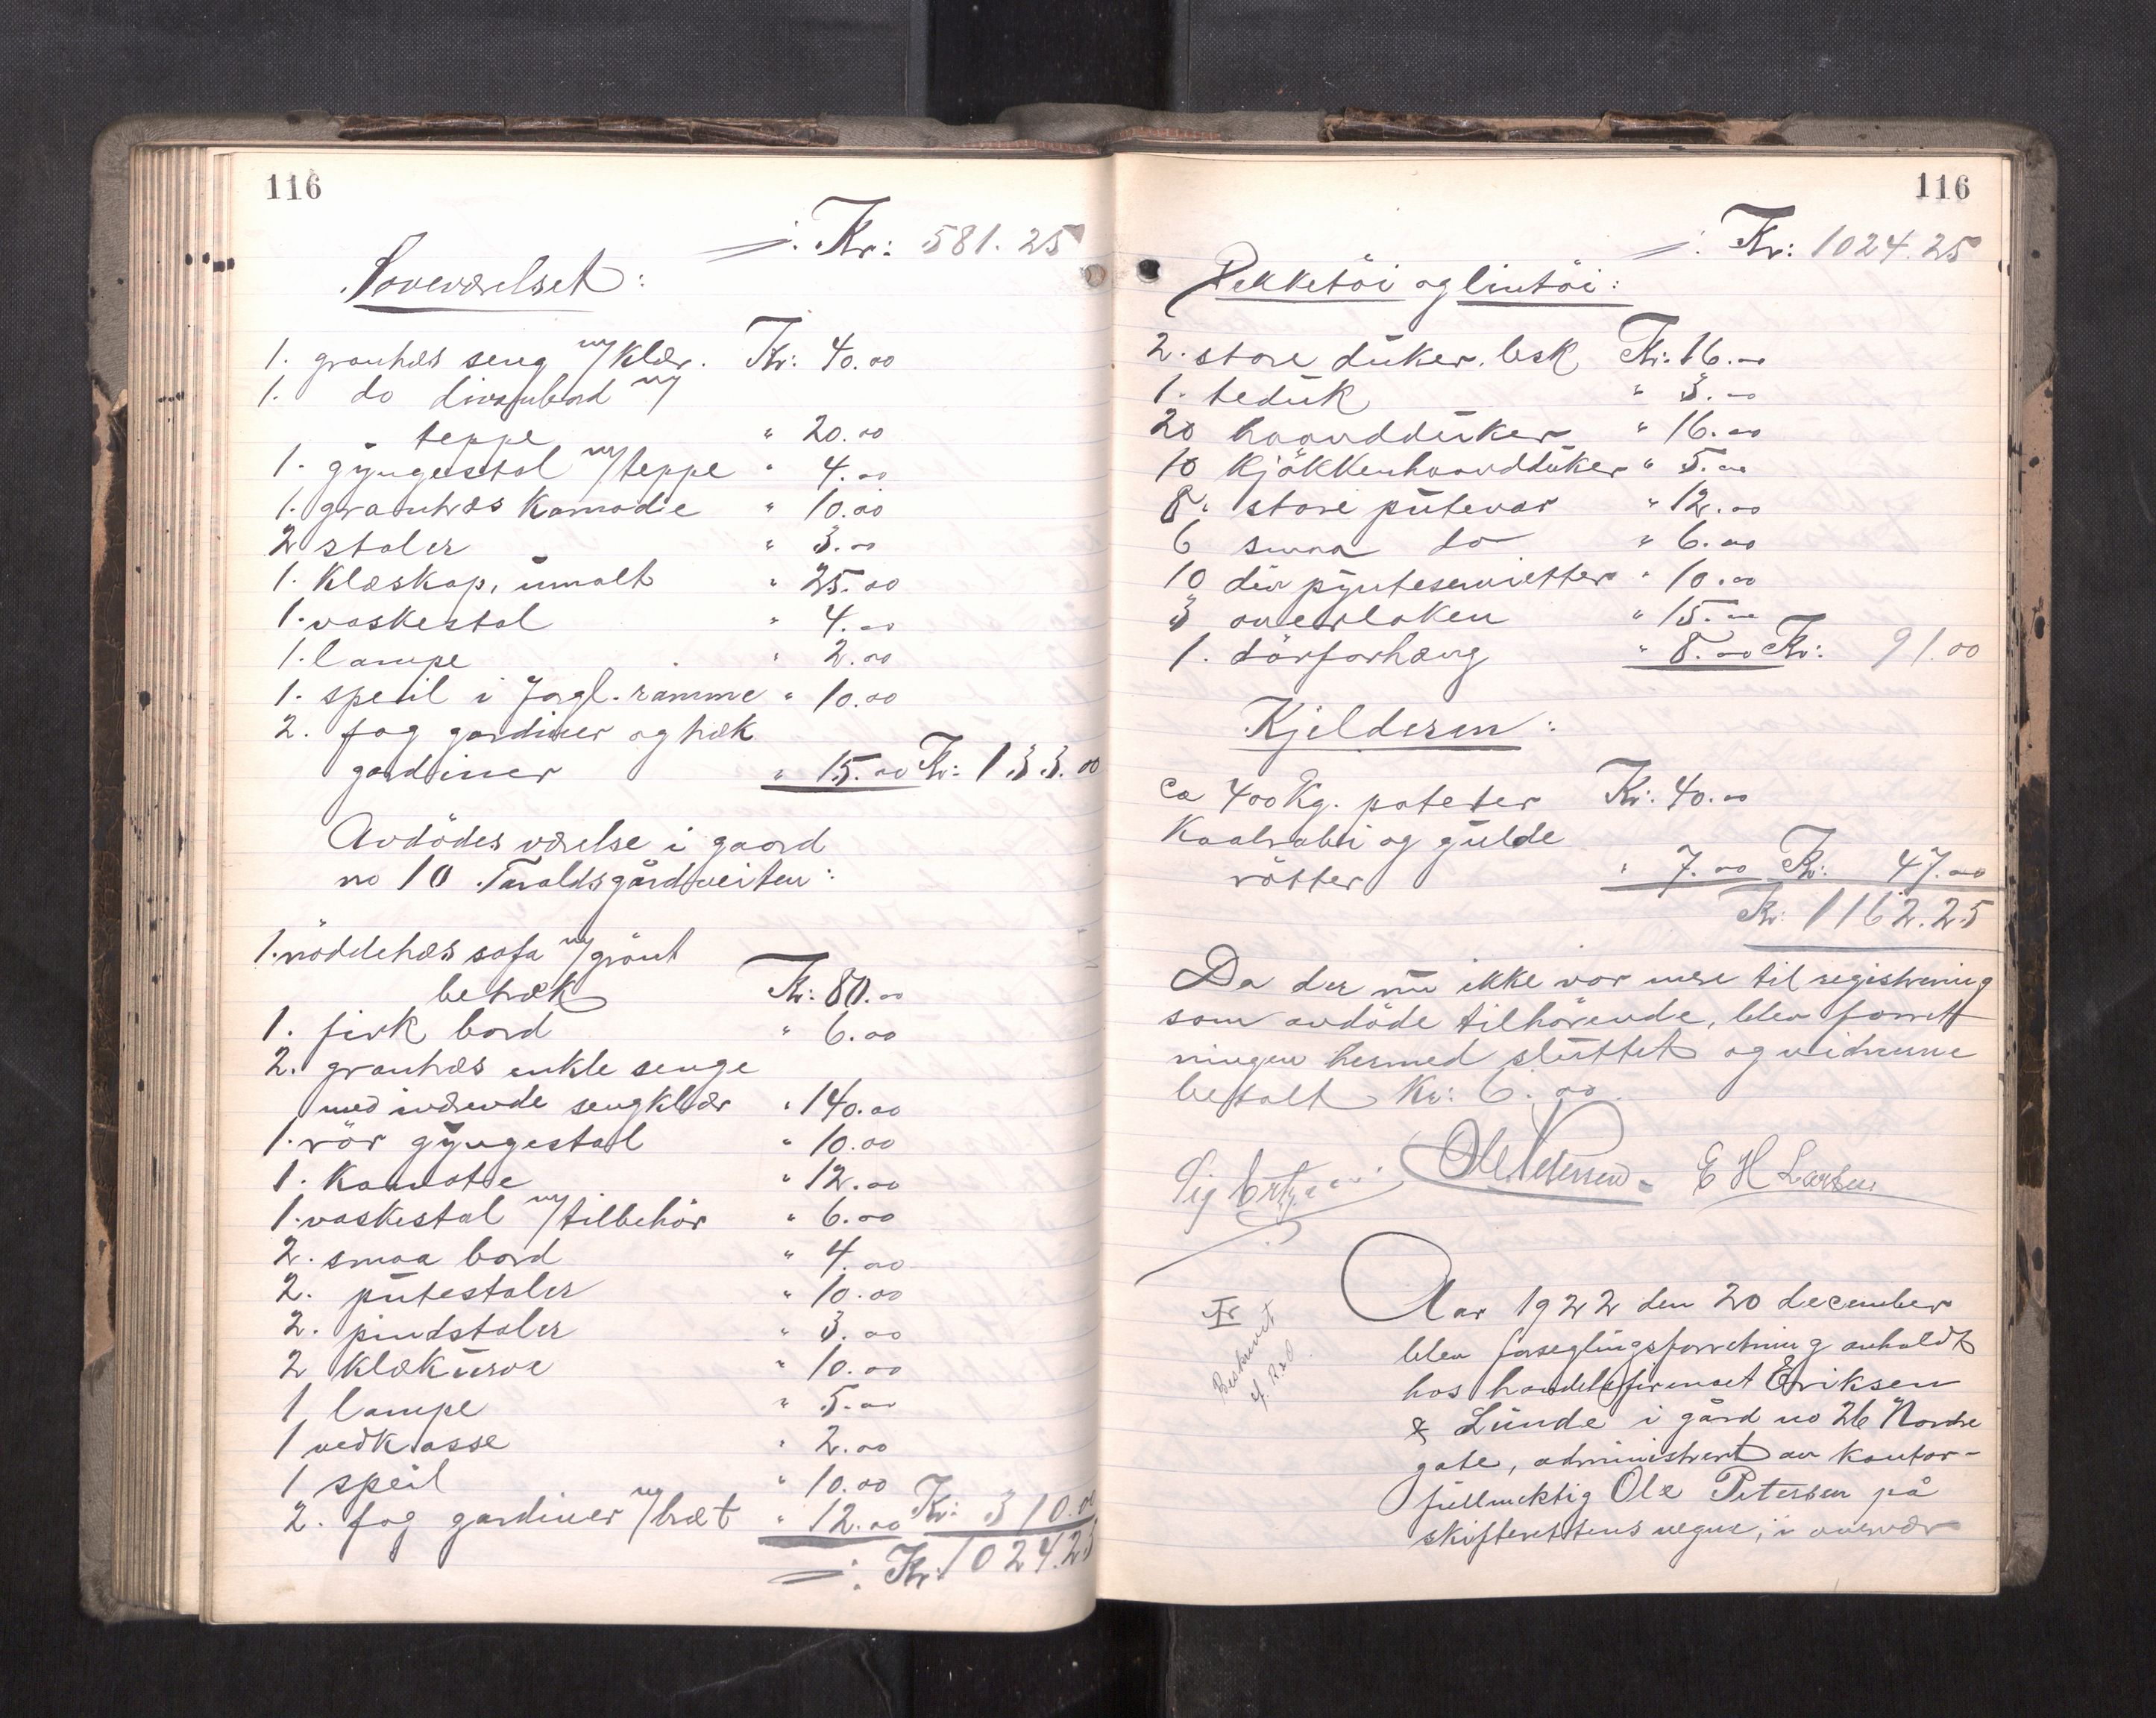 116
Kr: 581.25
Soveværelset:
1. grantræs seng m/klær. Kr: 40.00
1. do divanbord m/
teppe " 20.00
1. gyngestol m/teppe " 4.00
1. grantræs kamode " 10.00
2 stoler " 3.00
1. klæskap, umalt " 25.00
1. vaskestol " 4.00
1. lampe " 2.00
1. speil i forgl. ramme " 10.00
2. fag gardiner og træk
gardiner " 15.00 Kr: 133.00
Avdödes værelse i gaard
no 10 Taraldsgårdveiten:
1. nöddetræs sofa m/grönt
betræk Kr: 80.00
1. firk bord " 6.00
2. grantræs enkle senge
med iværende sengklær " 140.00
1. rör gyngestol " 10.00
1. Kamode " 12.00
1. vaskestol m/tilbehör " 6.00
2. smaa bord " 4.00
2. putestoler " 10.00
2. pindstoler " 3.00
2 klækurve " 10.00
1 lampe " 5.00
1 vedkasse " 2.00
1 speil " 10.00
2. fag gardiner m/bræt " 12.00 Kr: 310.00
Kr: 1024.25
116
Kr: 1024.25
Dekketöi og lintöi:
2. store duker. besk Kr: 16.00
1. teduk " 3.00
20 haandduker " 16.00
10 kjökkenhaandduker " 5.00
8. store putevar " 12.00
6 smaa do " 6.00
10 div pynteservietter " 10.00
3 overlaken " 15.00
1. dörforhæng " 8.00 Kr: 91.00
Kjelderen:
ca 400 Kg. poteter Kr: 40.00
Kaalrabi og gulde
rötter " 7.00 Kr: 47.00
Kr: 1162.25
Da der nu ikke var mere til registrering
som avdöde tilhörende, blev forret
ningen hermed sluttet og vidnerne
betalt Kr: 6.00.
Ole Petersen. E H Larsen
Aar 1922 den 20 december
blev forseglingsforretning avholdt
hos handelsfirmaet Eriksen
& Lunde i gård no 26 Nordre
gate, administrert av kontor-
fuldmektig Ole Petersen på
skifterettens vegne, i overvær